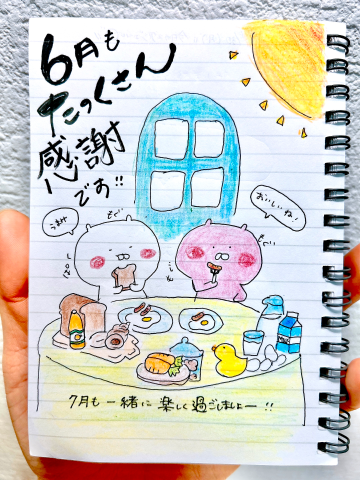 6月も
たっくさん
感謝
です!!
おいしいね!
うまけ
もぐ
もぐ
7月も一緒に楽しく過ごしましょー!!